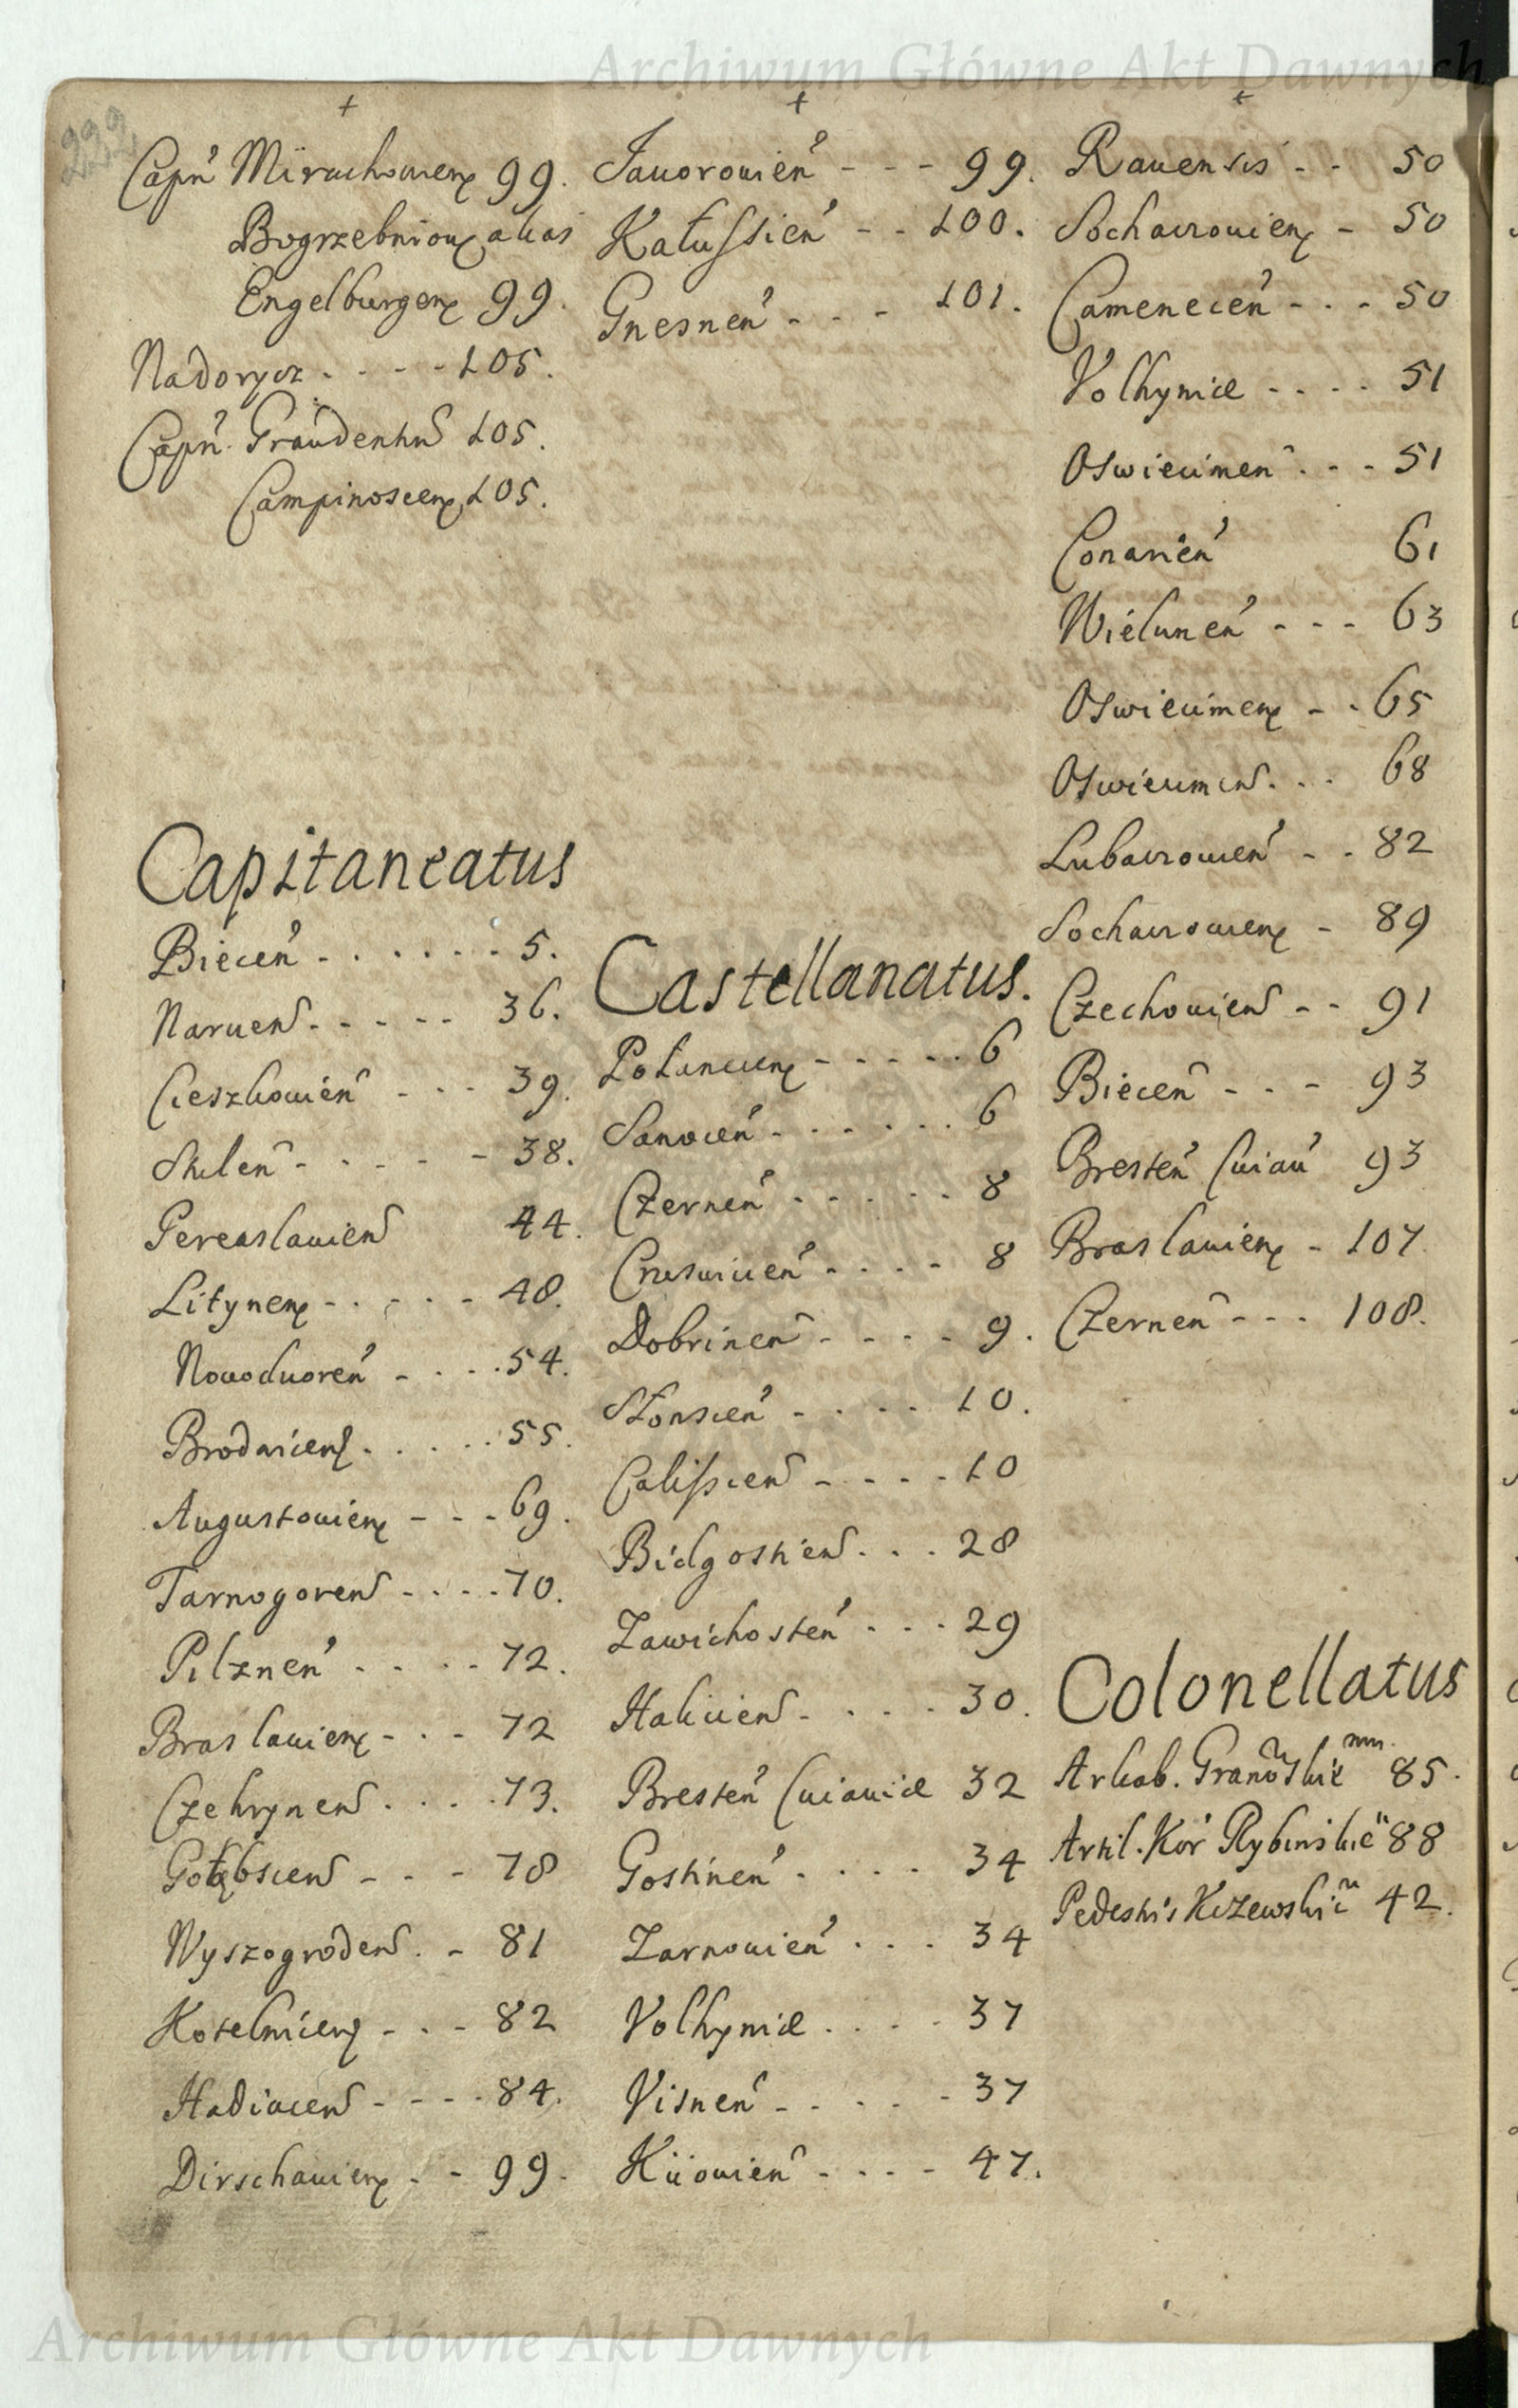 Archiwum Główne Akt Dawnych
222
Capñ Miruchouienʒ 99.
Bogrzebniouʒ alias
Engelburgenʒ 99.
Nadorycz . - - - 105.
Capñ. Graudenhs 105.
Campinoscenʒ 105.
Capitaneatus
Biecen̄ - . . . . - 5.
Naruens - - - - - 36.
Cieszkouien̄ - - - 39.
Stulen̄ - - - - - 38.
Pereaslauiens 44.
Litynenʒ - - - - - 48.
Nouoduoren̄ - - - . 54.
Brodnicenʒ . . . . . 55.
Augustouienʒ - - - 69.
Tarnogorens - . - . 70.
Pilznen̄ . . . . - 72.
Braslauienʒ - - - 72
Czehrynens . . . . 73.
Gołębsciens - - - 78
Wyszogrodens . - 81
Kotelnicenʒ - - - 82
Hadiacens - - - - 84.
Dirschauienʒ - - 99.
Jauorouien̄ - - - 99.
Kałussien̄ - - 100.
Gnesnen̄ - - - 101.
Castellanatus.
Połanecenʒ - - - - - 6
Sanocen̄ - . . . . . 6
Czernen̄ . . . . . - 8
Crusuicen̄ . . . . - 8
Dobrinen̄ - . . . - 9.
Słonscen̄ . . . . - 10.
Calisciens - - - - - 10
Bidgostiens . . . 28
Zawichosten̄ . . . 29
Haliciens - . . . - 30.
Bresten̄ Cuiauiæ 32
Gostinen̄ . . . . 34
Zarnouien̄ . . . 34
Volhyniæ . . . . 37
Visnen̄ - . . . . - 37
Kiiouien̄ . . . . - 47.
Rauensis - - 50
Sochacrouienʒ - 50
Camenecen̄ - . - 50
Volhyniæ - - - - 51
Oswiecimen̄ . - - 51
Conarien̄ 61
Wielunen̄ - - - 63
Oswiecimenʒ - - 65
Oswiecimens . . . 68
Lubacrouien̄ - - 82
Sochacrouienʒ - 89
Czechouiens - - 91
Biecen̄ - - - 93
Bresten̄ Cuiau̇ 93
Braslauienʒ - 107.
Czernen̄ - - - 108.
Colonellatus
Arkab. Granoskie 85.
Artil. Kor Rybinskie 88
Pedestris Kczewskie 42.
Archiwum Główne Akt Dawnych